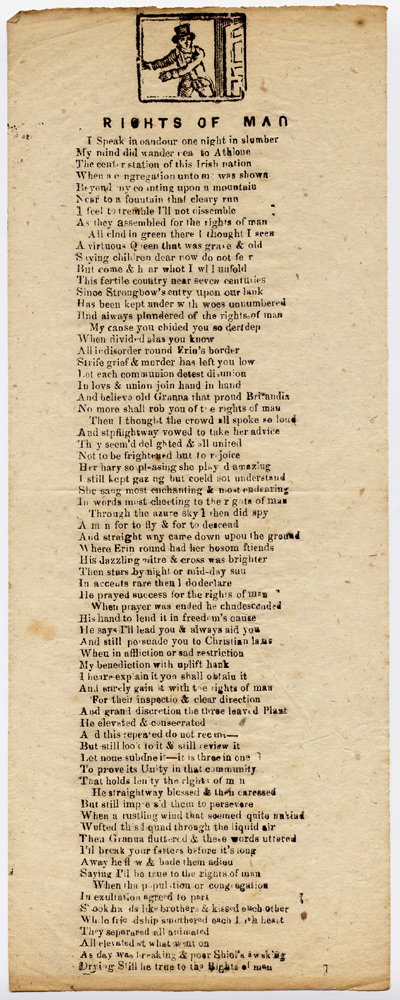 RIGHTS OF MAN
I Speak in oandour one night in slumber
My mind did wander to Athlone
The center station of this Irish nation
When a unto me was shown
Beyond my counting upon a mountain
Near to a fountain that cleary run
I feel to tremble I'll not dissemble
As they assembled for the rights of man
All clad in green there I thought I seen
A virtuous Queen that was grave & old
Saying children dear now do not
But come & what I will unfold
This fertile country near seven centuries
Since Strongbow's entry upon our lank
Has been kept under with woes unnumbered
And always plundered of the rights of man
My cause you chided you so
When divided alas you know
All indisorder round Erin's border
Strife grief & murder has left you low
Let each communion detest disunion
In lovs & union join hand in hand
And believe old Granna that proud Britandia
No more shall rob you of the rights of man
Then I thought the crowd all spoke so loud
And stpflightway vowed to take her advice
They seem'd delighted & all united
Not to be frightened but to rejoice
Her harp so pleasing she play'd amazing
I still kept gazing but coeld not understand
She sang most enchanting & most endearing
In words most cheeting to the rights of man
Through the azure sky I then did spy
A man for to fly & for to descend
And straight way came down upou the ground
Where Erin round had her bosom ftiends
His dazzling mitre & cross was brighter
Then stars by night or mid-day suu
In accents rare then I do declare
He prayed success for the rights of man
When prayer was ended he chndescended
His hand to lend it in freedom's cause
He says I'll lead you & always aid you
And still you to Christian laws
Wheu in affliction or sad restriction
My benediction with uplift hank
I heare explain it you shall obtain it
And surely gain it with the rights of man
For their inspectio & clear direction
And grand discretion the three leaved Plant
He elevated & consecrated
And this repeated do not recunt—
But still look to it & still review it
Let none subdue it—it is three in one
To prove its Unity in that community
That holds the rights of man
He straightway blessed & then caressed
But still them to persevere
When a rustling wind that seemed quite
Wufted this through the liquid air
Then Granna fluttered & these words uttered
I'll break your fetters before it's long
Away he flew & bade them adieu
Saying I'll be true to the rights of man
When tha population or congregation
In exultation agreed to part
Shook hands like brothers & kissed each other
While friendship smothered each Irish heart
They separared all animated
All elevated at what went on
As day was breaking & poor Shiol's awaking
Drying Still he true to the Rights of man